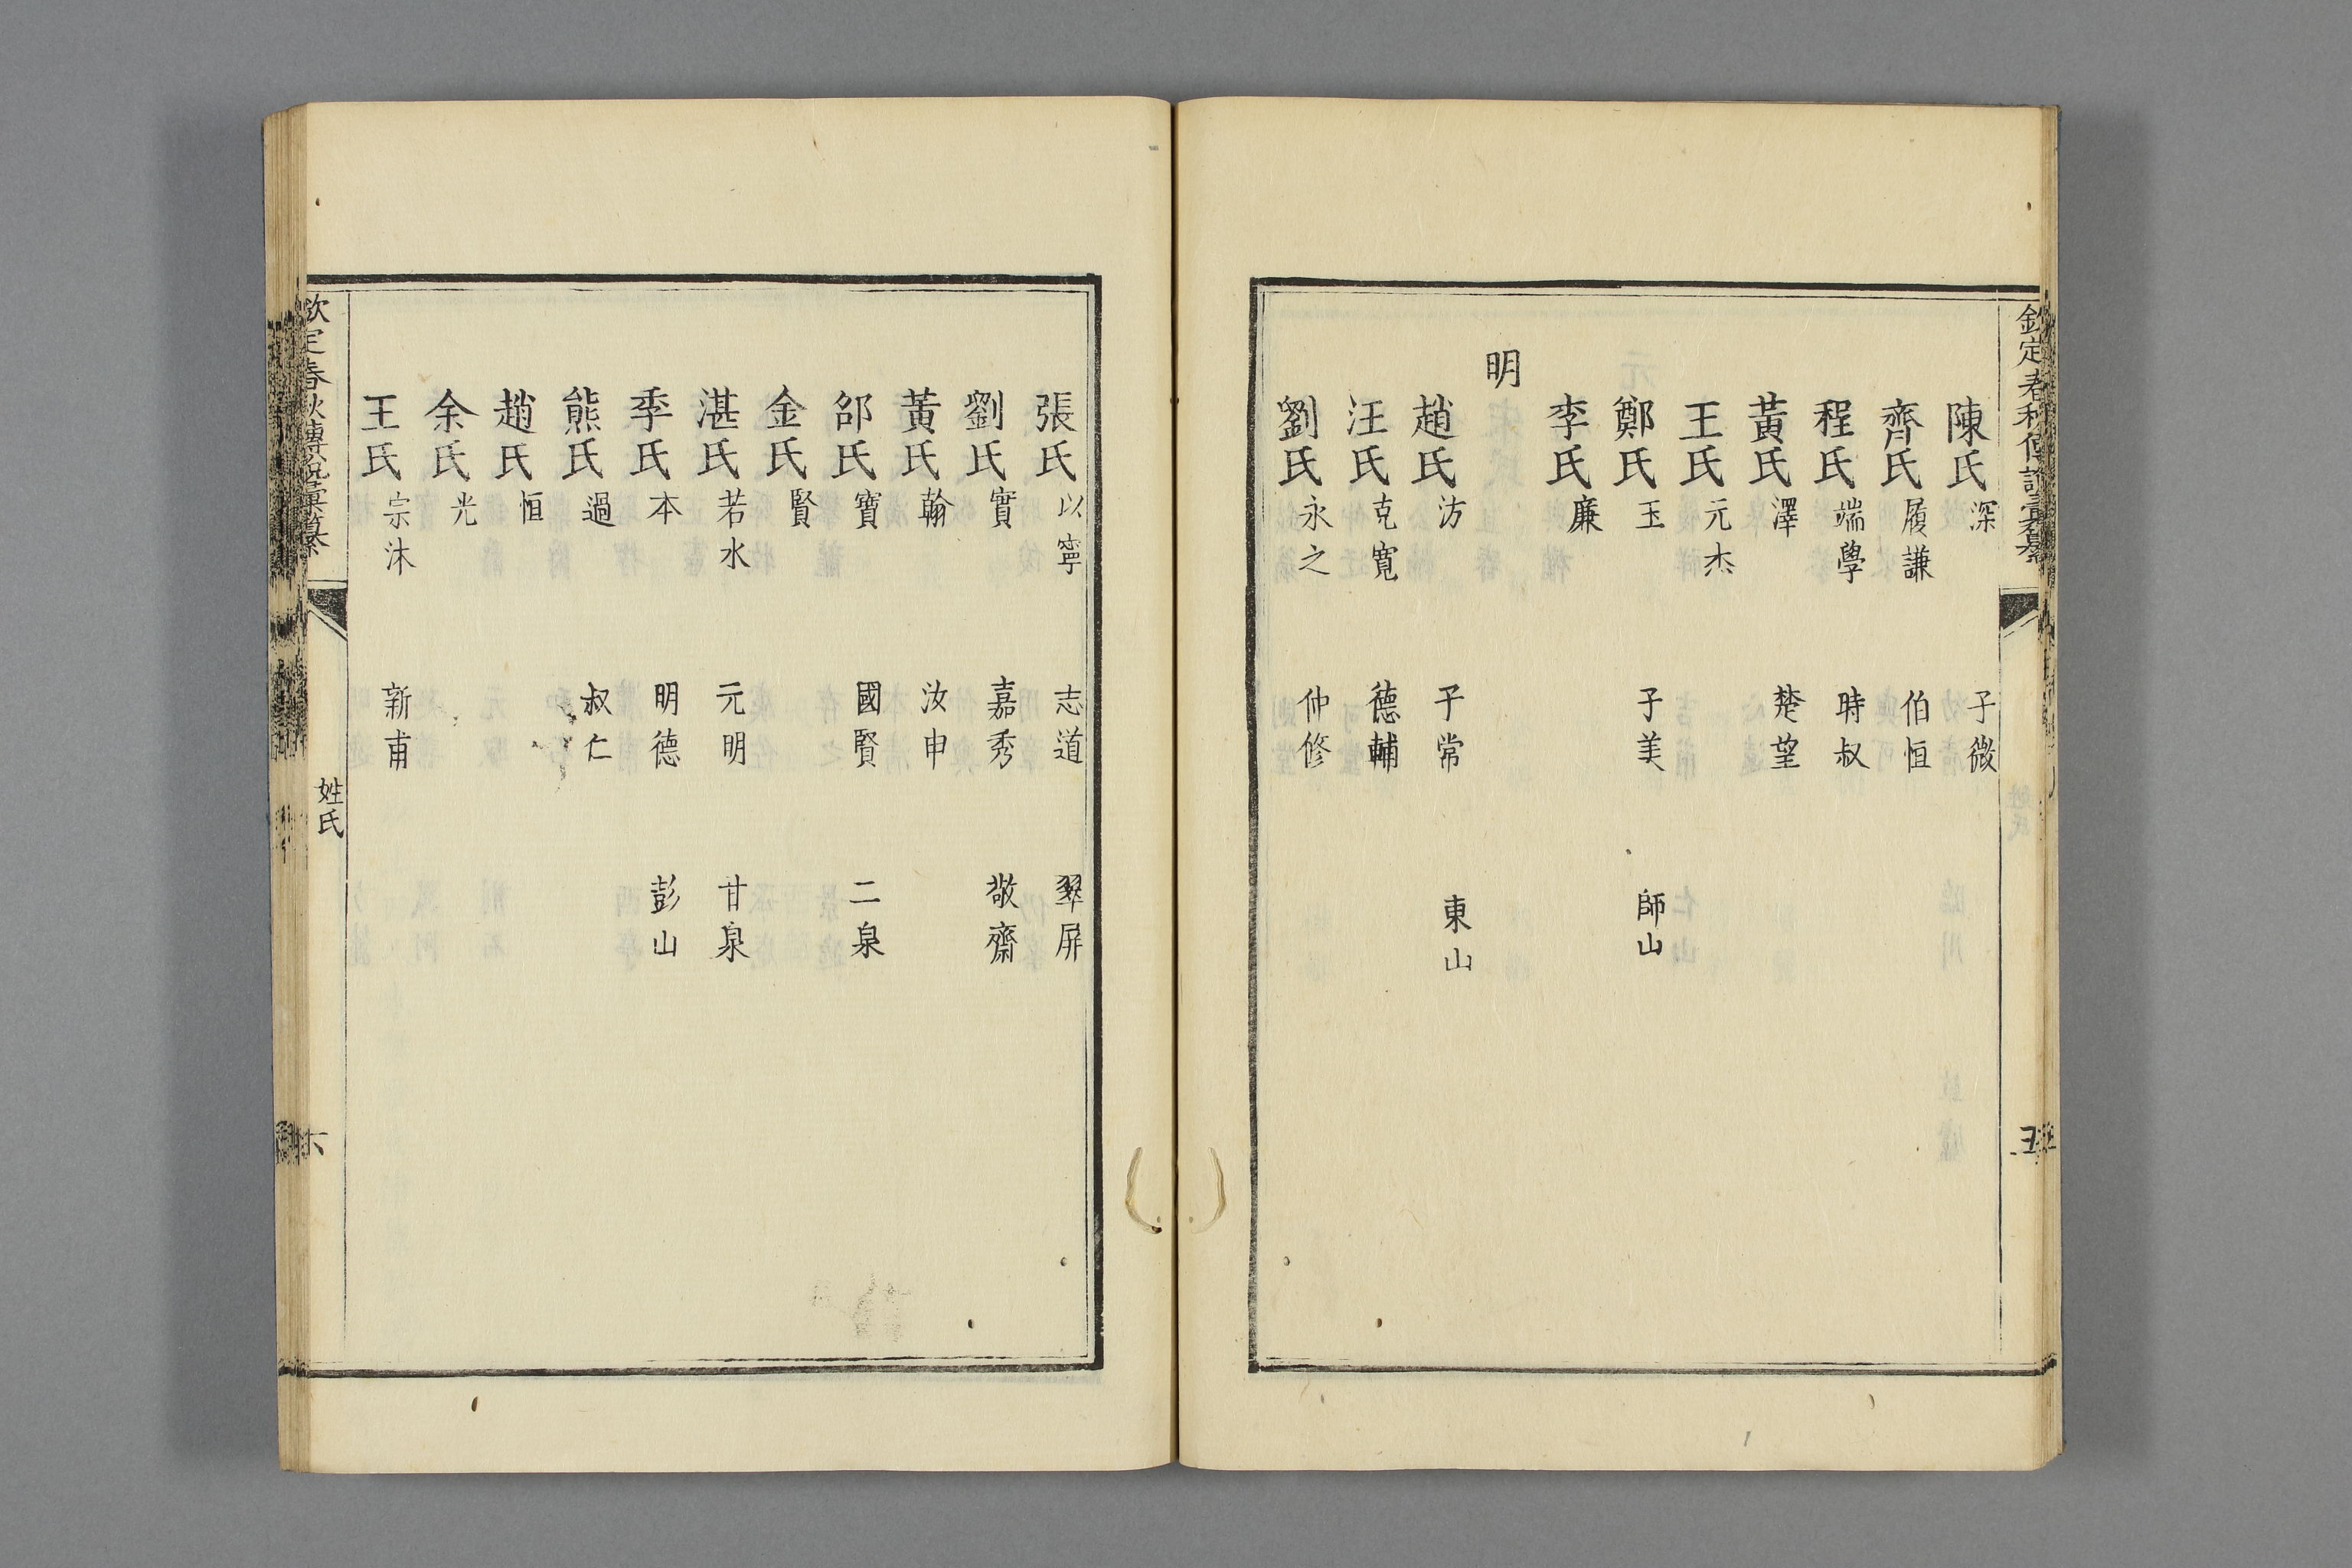 陳氏 深 子微
齊氏 履謙 伯恒
程氏 端學 時叔
黃氏 澤 楚望
王氏 元杰
鄭氏 玉 子美 師山
李氏 廉
明
趙氏 汸 子常 東山
汪氏 克寬 德輔
劉氏 永之 仲修
五
張氏 以寧 志道 翠屏
劉氏 實 嘉秀 敬齋
黃氏 翰 汝申
邵氏 寶 國賢 二泉
金氏 賢
湛氏 若水 元明 甘泉
季氏 本 明德 彭山
熊氏 過 叔仁
趙氏 恒
余氏 光
王氏 宗沐 新甫
欽定春秋傳說彙纂 姓氏 六